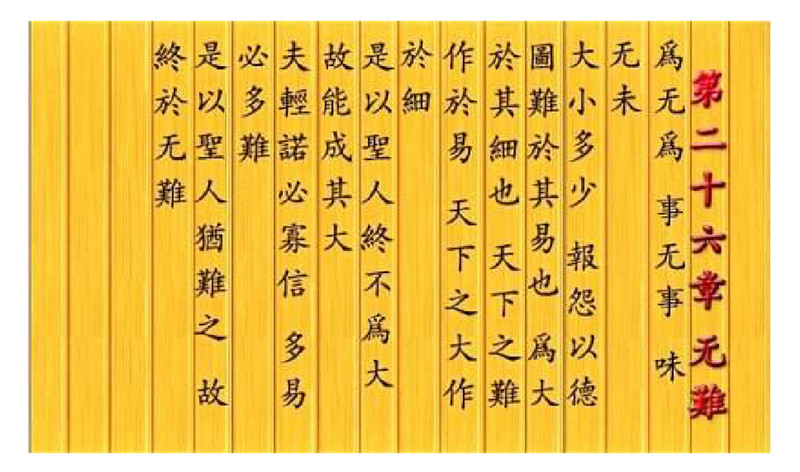 第二十六章 无難
爲无爲 事无事 味
无未
大小多少 報怨以德
圖難於其易也 爲大
於其細也 天下之難
作於易 天下之大作
於細
是以聖人終不爲大
故能成其大
夫輕諾必寡信 多易
必多難
是以聖人猶難之 故
終於无難